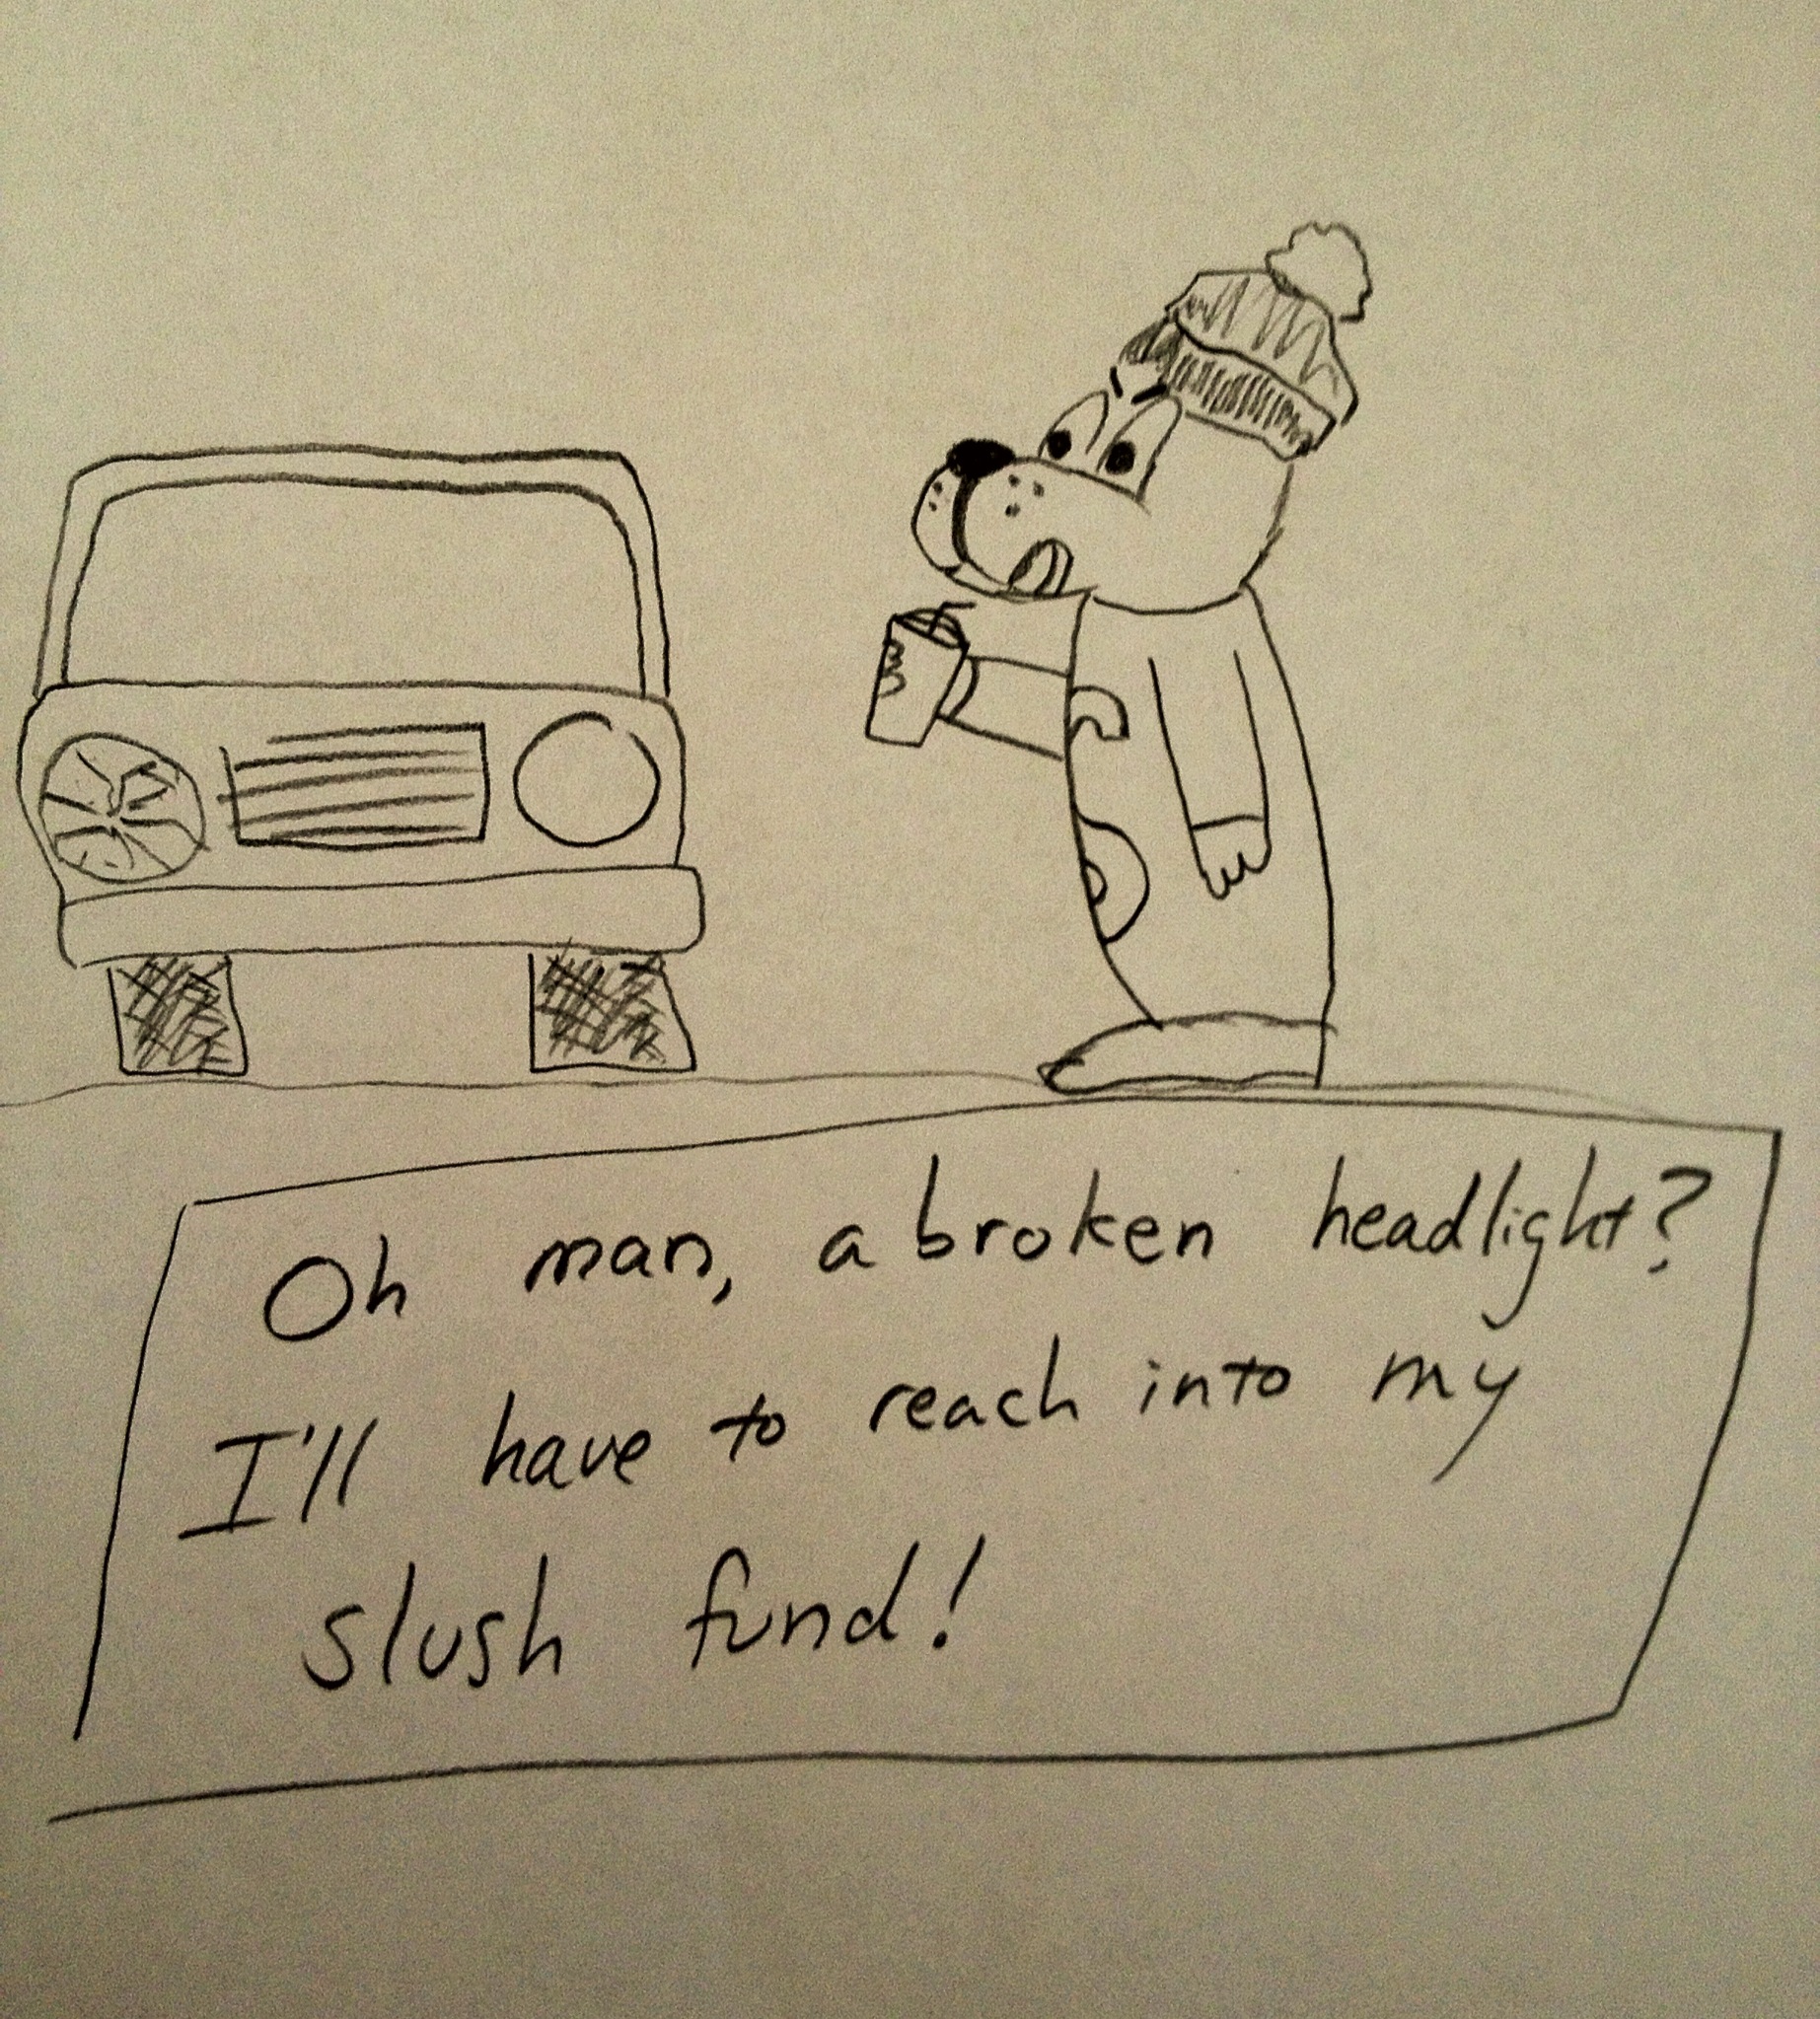 Oh man, a broken headlight?
I'll have to reach into my
slush fund!